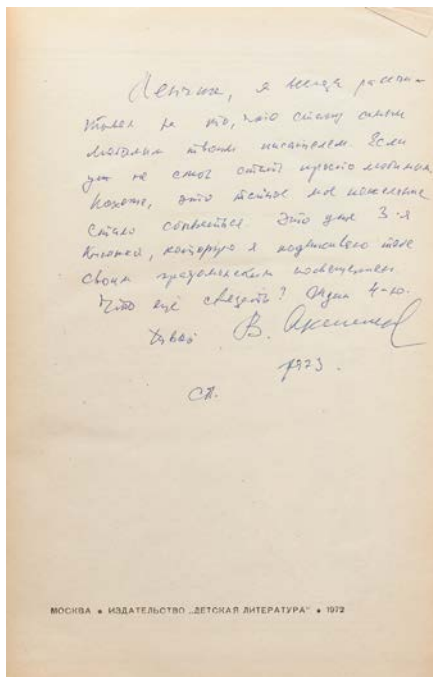 Ленчик, я всегда рассчи-
тывал на то, что стану самым
любимым твоим писателем. Если
уж не смог стать просто любимым.
Похоже, это тайное мое пожелание
стало сбываться. Это уже 3-я
книжка, которую я подписываю тебе
своим
Что ещё сказать? Ждем 4-ю.
твой В. Аксенов
1973.
СП.
МОСКВА • ИЗДАТЕЛЬСТВО „ДЕТСКАЯ ЛИТЕРАТУРА" • 1972